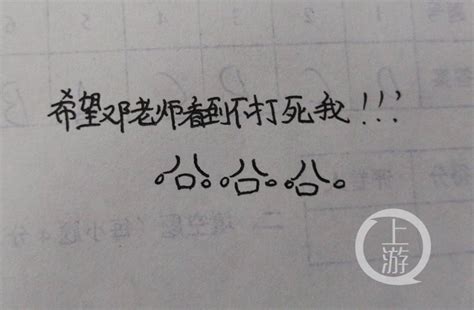 希望邓老师看到不打死我!!!
上游